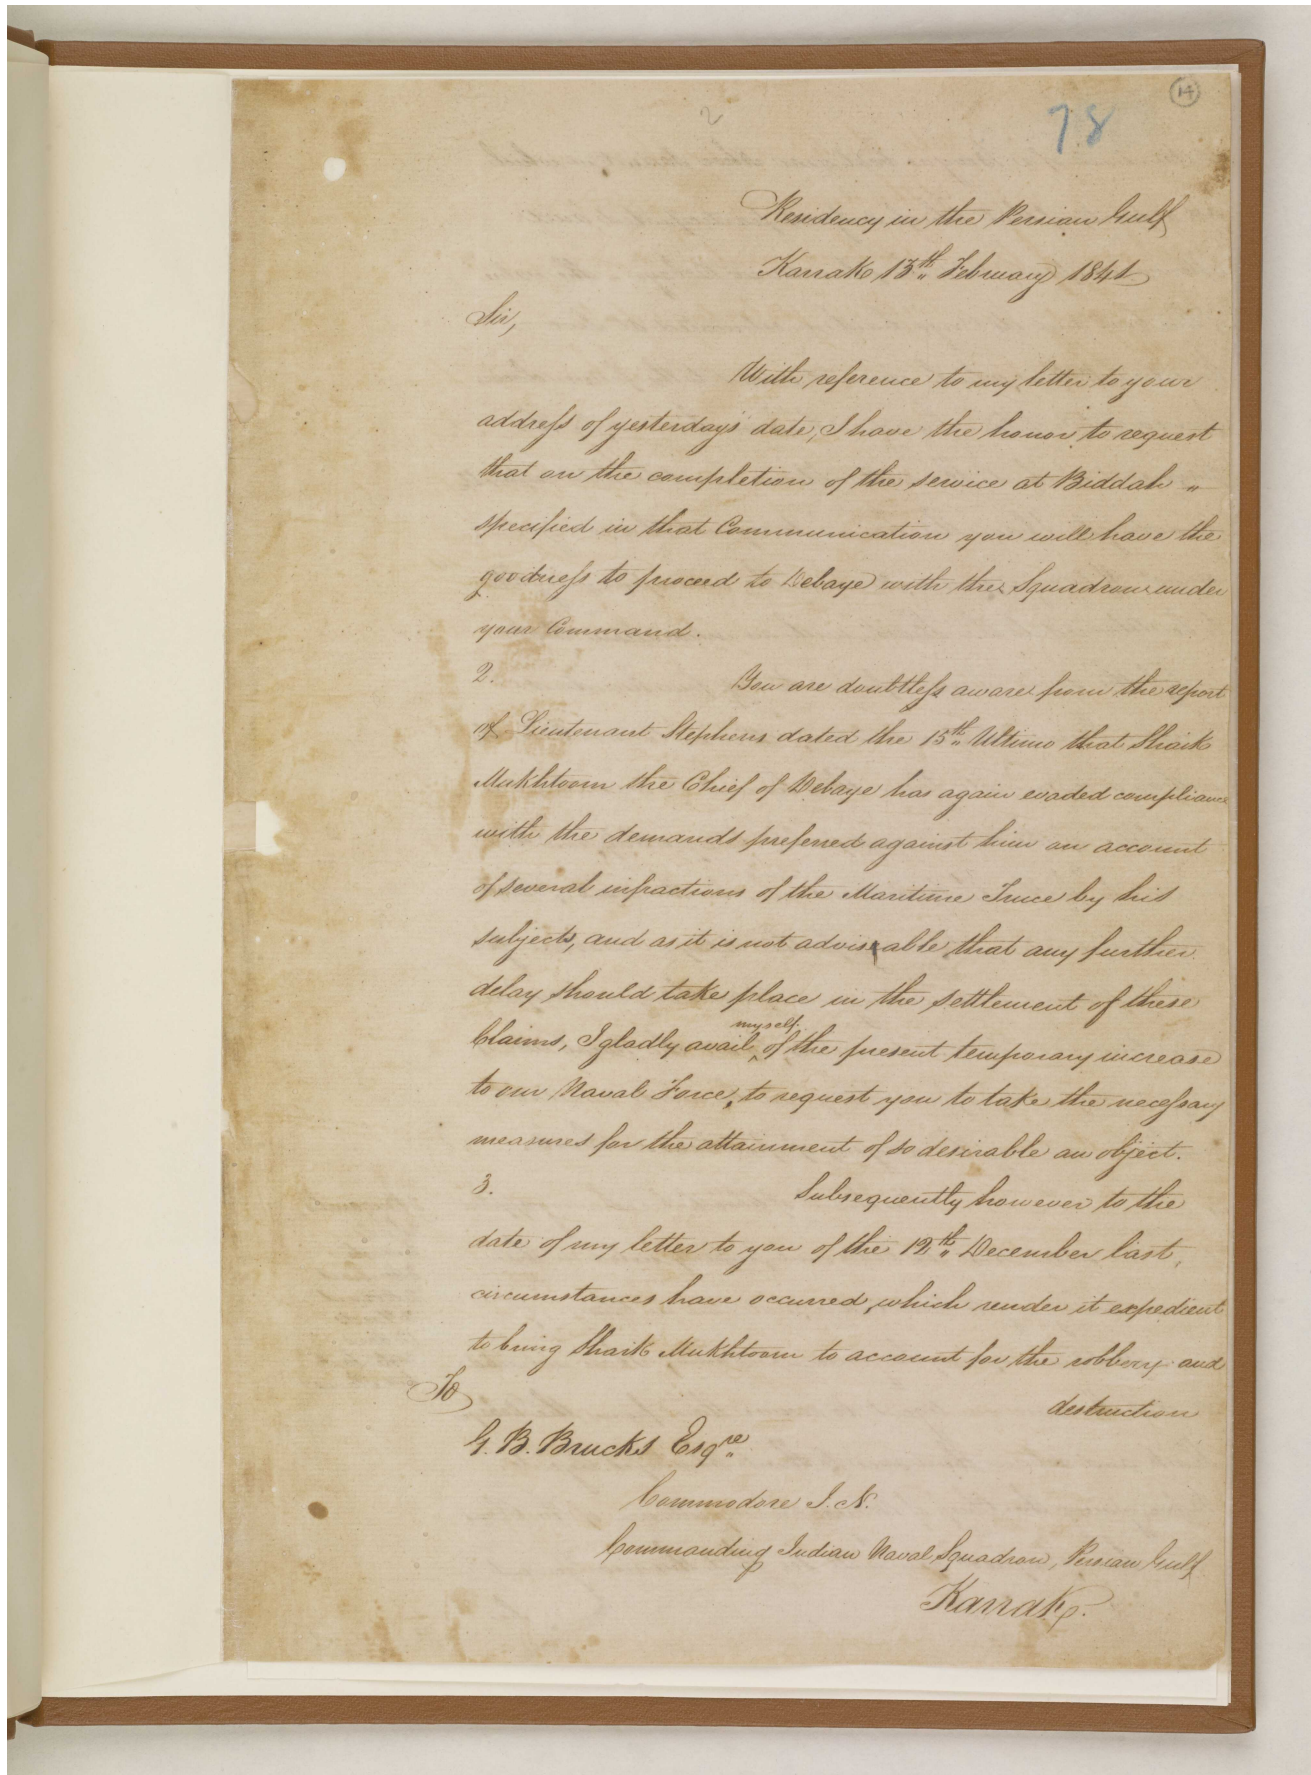 14
2
78
Residency in the Persian Gulf
Karrak 13th February 1841
Sir,
With reference to my letter to your
address of yesterday's date, I have the honor to request
that on the completion of the service at Biddah "
specified in that Communication you will have the
goodness to proceed to Debaye with the Squadron under
your Command.
2. You are doubtless aware from the report
of Lieutenant Stephens dated the 15th Ultimo that Shaik
Mukhtoom the Chief of Debaye has again evaded compliance
with the demands preferred against him on account
of several infractions of the Maritime Truce by his
subjects, and as it is not adviseable that any further
delay should take place in the settlement of these
Claims, I gladly avail myself of the present temporary increase
to our Naval Force, to request you to take the necessary
measures for the attainment of so desirable an object.
3. Subsequently however to the
date of my letter to you of the 12th December last,
circumstances have occurred, which render it expedient
to bring Shaik Mukhtoom to account for the robbery and
destruction
To
G. B. Brucks Esqre
Commodore I. N.
Commanding Indian Naval Squadron, Persian Gulf
Karrak.